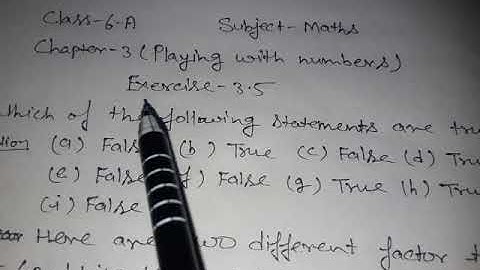 Class-6-A Subject-Maths
Chapter-3 (Playing with numbers)
Exercise-3.5
Which of the following statements are
(a) False (b) True (c) False (d)
(e) False f) False (g) True (h)
(i) False
Here are two different factor